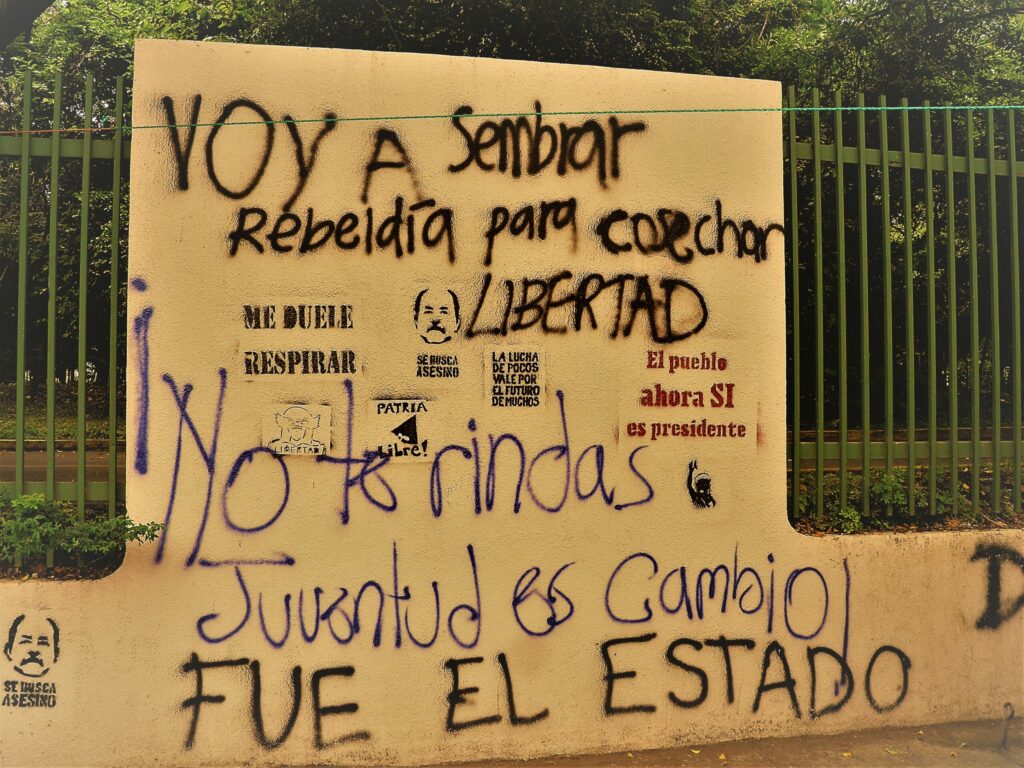 VOY A sembrar
Rebeldía para cosechar
LIBERTAD
ME DUELE
RESPIRAR
SE BUSCA
ASESINO
LA LUCHA
DE POCOS
VALE POR
EL FUTURO
DE MUCHOS
El pueblo
ahora SI
es presidente
LIBERTAD
PATRIA
Libre!
¡No te rindas
Juventud es Cambio!
FUE EL ESTADO
SE BUSCA
ASESINO
D